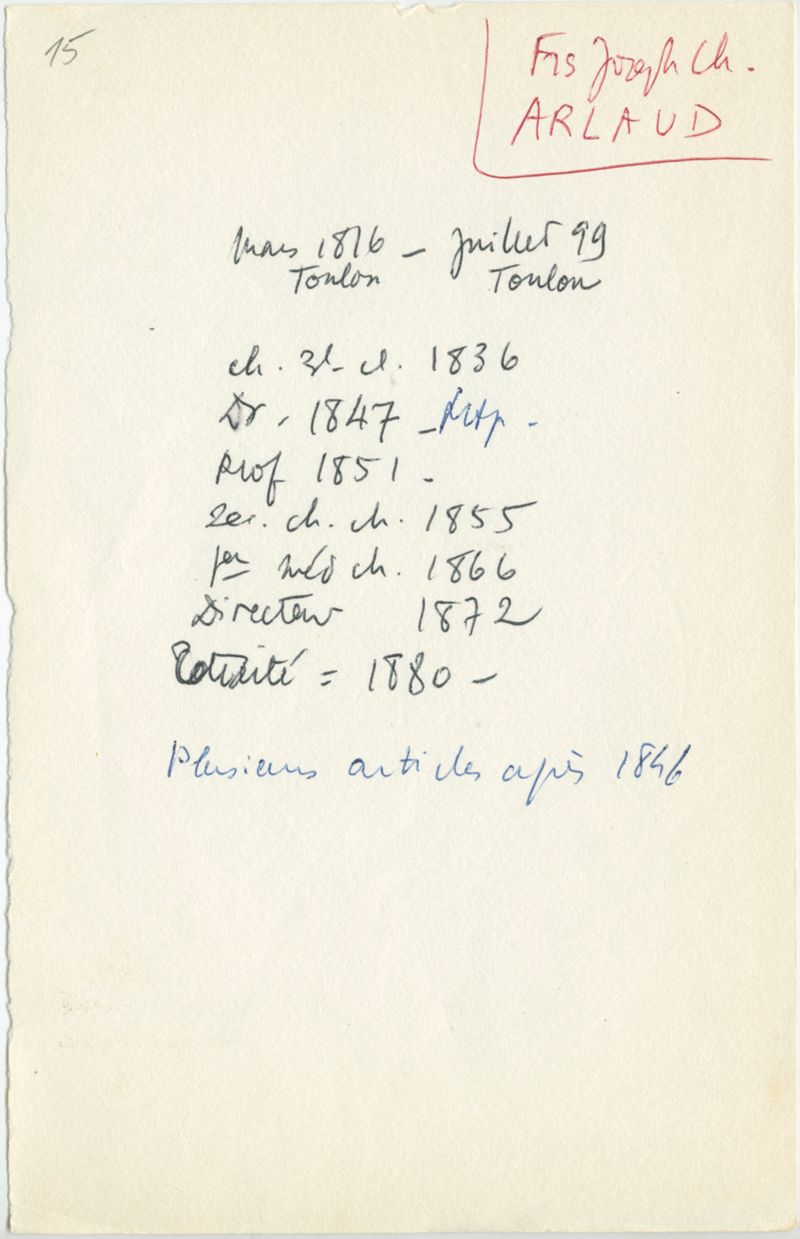 15
Frs Joseph Ch.
ARLAUD
mars 1816 - Juillet 99
Toulon Toulon
ch. 3e cl. 1836
Dr. 1847 -
Prof 1851.
2e ch. ch. 1855
1er méd ch. 1866
Directeur 1872
Retraité = 1880 -
Plusieurs articles après 1846